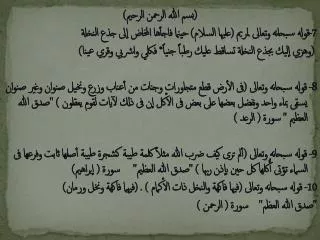 (بسم الله الرحمن الرحيم)
7-قوله سبحانه وتعالى لمريم (عليها السلام) حينما فاجأها المخاض إلى جذع النخلة
(وهزي إليك بجذع النخلة تساقط عليك رطباً جنياً* فكلي واشربي وقري عينا)
8- قوله سبحانه وتعالى (فى الأرض قطع متجاورات وجنات من أعناب وزرع ونخيل صنوان وغير صنوان
يسقى بماء واحد ونفضل بعضها على بعض فى الأكل إن فى ذلك لآيات لقوم يعقلون ) "صدق الله
العظيم " سورة ( الرعد )
9- قوله سبحانه وتعالى (ألم ترى كيف ضرب الله مثلاً كلمة طيبة كشجرة طيبة أصلها ثابت وفرعها فى
السماء تؤتى أكلها كل حين بإذن ربها ) "صدق الله العظيم" سورة ( إبراهيم)
10- قوله سبحانه وتعالى (فيها فاكهة والنخل ذات الأكمام ) . (فيها فاكهة ونخل ورمان)
"صدق الله العظم" سورة ( الرحمن )